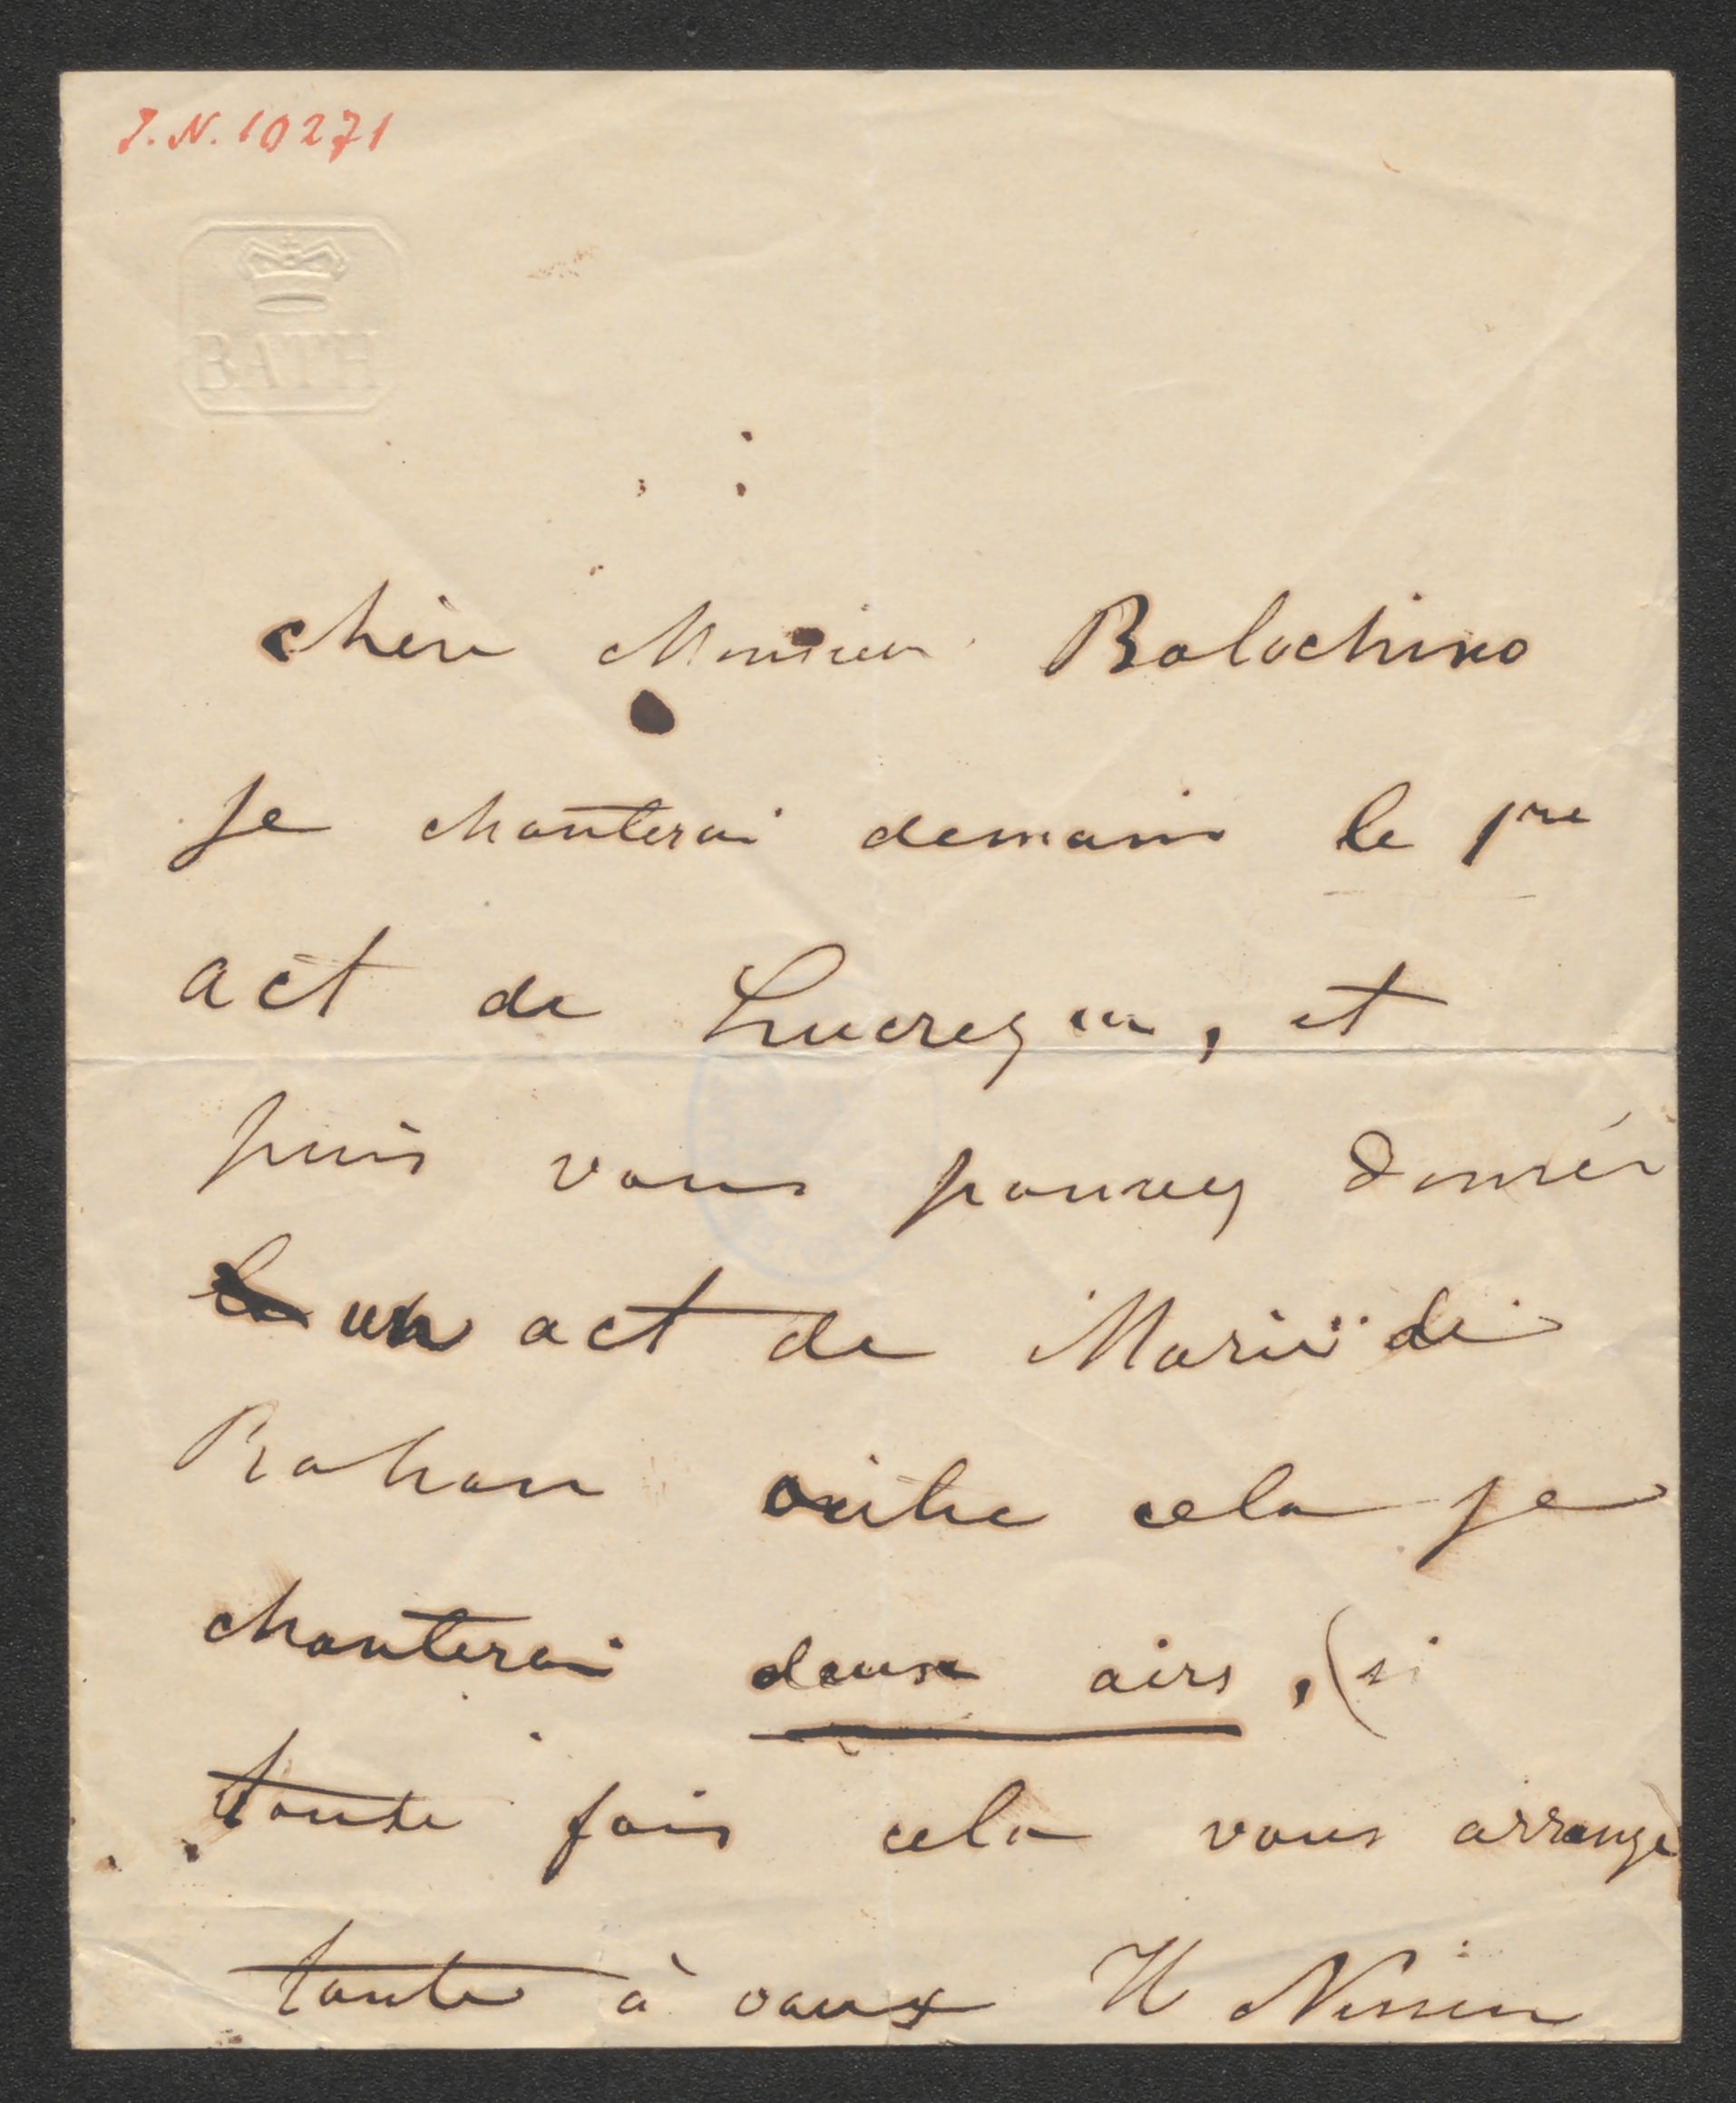 J.N. 10271
BATH
chèr Monsieur Balochino
Je chanterai demain le 1re
act de Lucrezia, et
puis vous pouvez donnér
un act de Mariё di
Rohan outre cela je
chanterai deux airs, (si
toute fois cela vous arrange)
toute à vous H Nissen